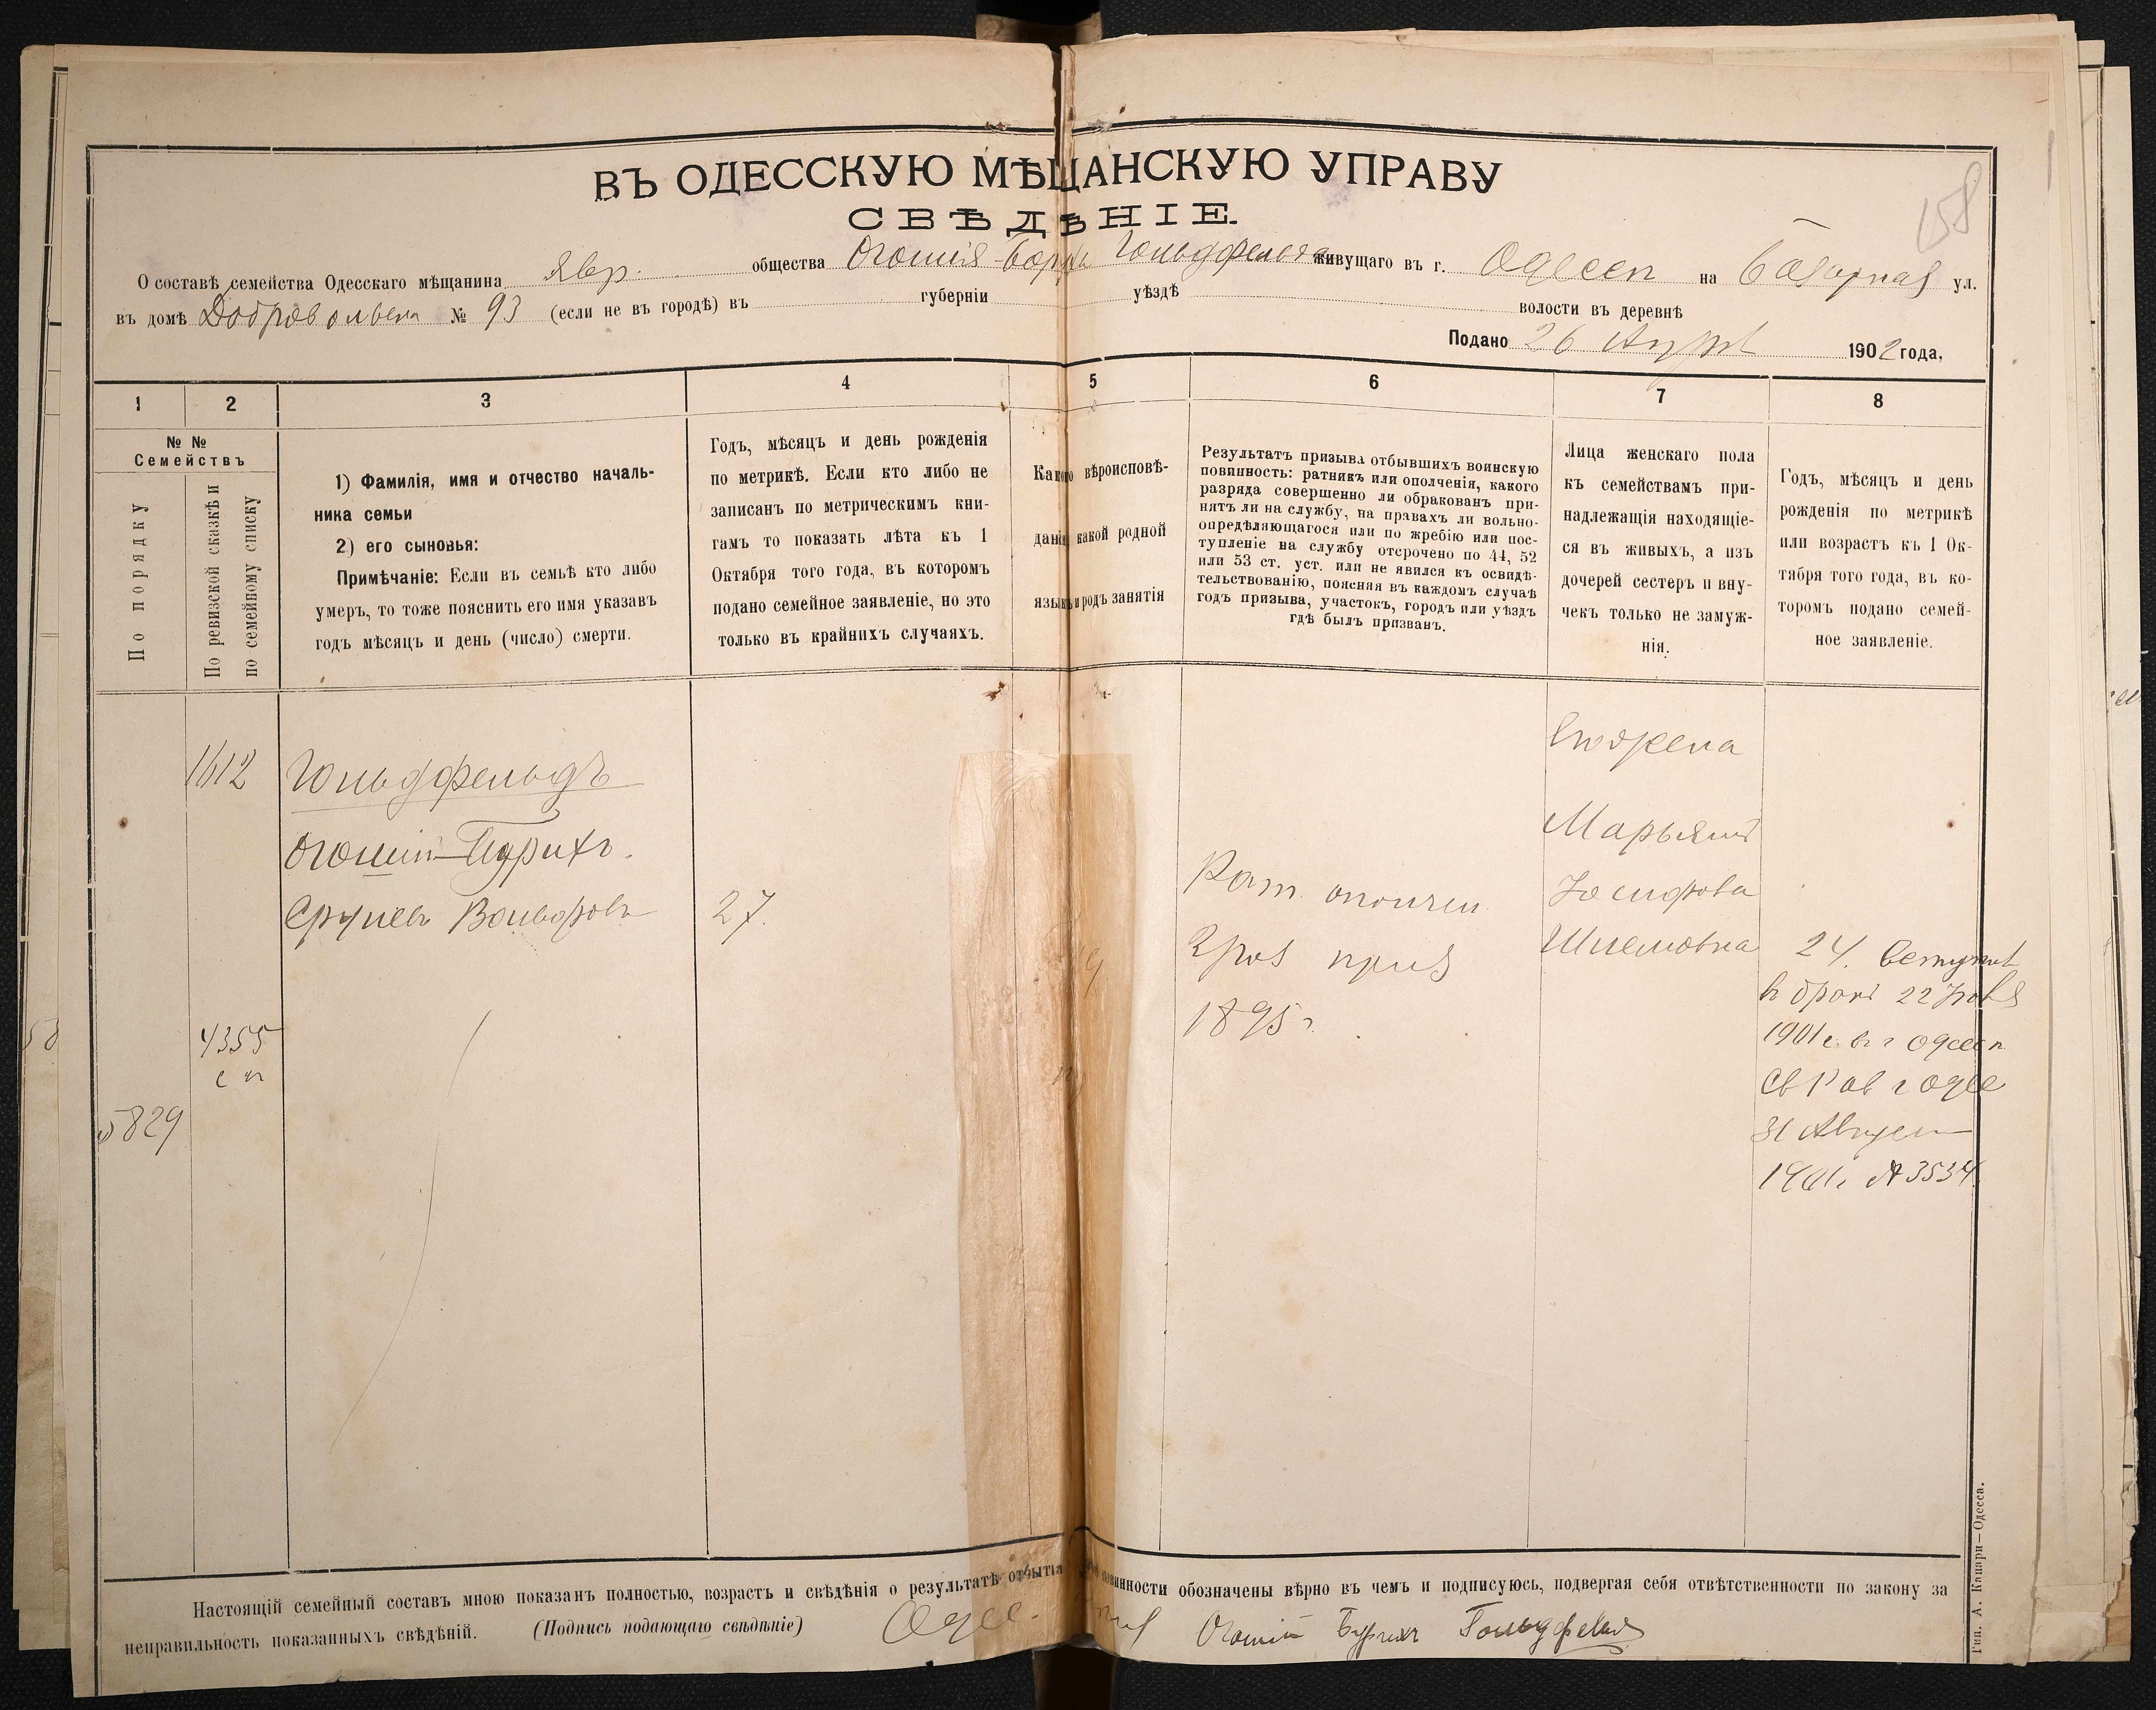 158
ВЪ ОДЕССКУЮ МѢЩАНСКУЮ УПРАВУ
СВѢДѢНІЕ.
О составѣ семейства Одесскаго мѣщанина Явр. общества Гольдфельда живущаго въ г. Одессѣ на Базарная ул.
въ домѣ Добровольск № 93 (если не въ городѣ) въ губерніи уѣздѣ волости въ деревнѣ
Подано 26 1902 года.
1 2 3 4 5 6 7 8
№ №
Семействъ
По порядку
По ревизской сказкѣ и
по семейному списку
1) Фамилія, имя и отчество началь-
ника семьи
2) его сыновья:
Примѣчаніе: Если въ семьѣ кто либо
умеръ, то тоже пояснить его имя указавъ
годъ мѣсяцъ и день (число) смерти.
Годъ, мѣсяцъ и день рожденія
по метрикѣ. Если кто либо не
записанъ по метрическимъ кни-
гамъ то показать лѣта къ 1
Октября того года, въ которомъ
подано семейное заявленіе, но это
только въ крайнихъ случаяхъ.
Какого вѣроисповѣ-
данія, какой родной
языкъ и родъ занятія
Результатъ призыва отбывшихъ воинскую
повинность: ратникъ или ополченія, какого
разряда совершенно ли обракованъ при-
нятъ ли на службу, на правахъ ли вольно-
опредѣляющагося или по жребію или пос-
тупленіе на службу отсрочено по 44, 52
или 53 ст. уст. или не явился къ освидѣ-
тельствованію, поясняя въ каждомъ случаѣ
годъ призыва, участокъ, городъ или уѣздъ
гдѣ былъ призванъ.
Лица женскаго пола
къ семействамъ при-
надлежащія находящіе-
ся въ живыхъ, а изъ
дочерей сестеръ и вну-
чекъ только не замуж-
нія.
Годъ, мѣсяцъ и день
рожденія по метрикѣ
или возрастъ къ 1 Ок-
тября того года, въ ко-
торомъ подано семей-
ное заявленіе.
1612 Гольдфельдъ
Вольфовъ 27.
Рат. ополчен
2 раз приз
1895 г.
Его жена
Марьямъ
Іосифова
Шлемовна
24. Вступил
в бракъ 22
1901 г. въ г Одессѣ
31 Августа
1901 г. № 3534
4355
5829
Настоящій семейный составъ мною показанъ полностью, возрастъ и свѣдѣнія о результатѣ отбытія повинности обозначены вѣрно въ чемъ и подписуюсь, подвергая себя отвѣтственности по закону за
неправильность показанныхъ свѣдѣній. (Подпись подающаго свѣдѣніе) Бурихъ Гольдфельд
Тип. А. Кацари—Одесса.